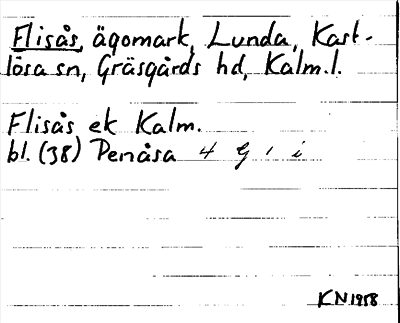 Flisås, ägomark, Lunda, Kast-
lösa sn, Gräsgårds hd, Kalm.l.
Flisås ek Kalm.
bl. (38) Penåsa 4 G 1 i
KN 1958